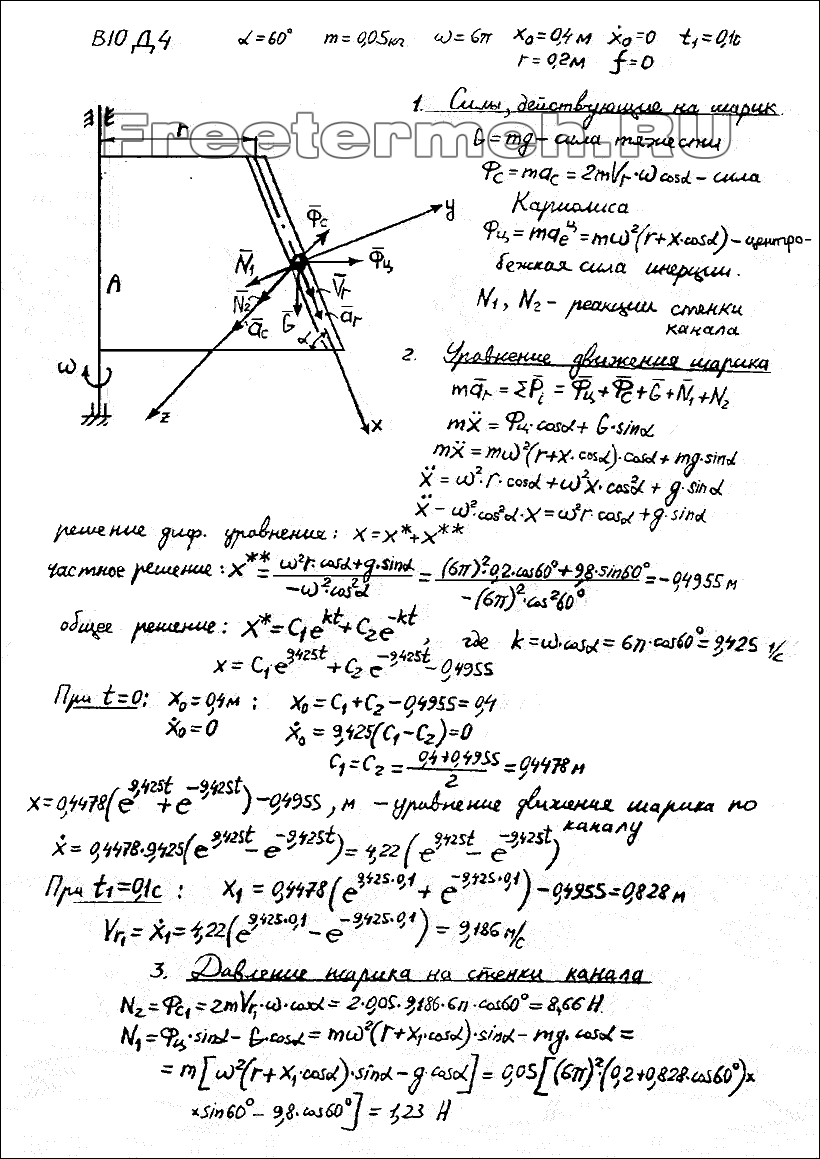 В10 Д.4 α=60° m=0,05кг ω=6π x₀=0,4м ẋ₀=0 t₁=0,1с
r=0,2м f=0
1. Силы, действующие на шарик
Freetermeh.RU
G=mg - сила тяжести
Φc=mac=2mVr·ωcosα - сила
Кариолиса
Φц=maₑᶜ=mω²(r+x·cosα) - центро-
бежная сила инерции.
N₁, N₂ - реакции стенки
канала
r
y
Φ̄c
N̄₁
Φ̄ц
A
N̄₂
V̄r
āc
Ḡ
ār
α
ω
z
x
2. Уравнение движения шарика
mār = ΣP̄i = Φ̄ц+Φ̄c+Ḡ+N̄₁+N₂
mẍ = Φц·cosα+G·sinα
mẍ = mω²(r+x·cosα)·cosα+mg·sinα
ẍ = ω²·r·cosα+ω²x·cos²α+g·sinα
ẍ-ω²·cos²α·x=ω²r·cosα+g·sinα
решение диф. уравнения: x=x*+x**
частное решение: x**= (ω²r·cosα+g·sinα)/(-ω²·cos²α) = ((6π)²·0,2·cos60°+9,8·sin60°)/(-(6π)²·cos²60°) = -0,4955 м
общее решение: x*=C₁eᵏᵗ+C₂e⁻ᵏᵗ, где k=ω·cosα=6π·cos60°=9,425 1/с
x = C₁·e^9,425t + C₂ e^-9,425t - 0,4955
При t=0: x₀=0,4м; x₀=C₁+C₂-0,4955=0,4
ẋ₀=0 ẋ₀ = 9,425(C₁-C₂)=0
C₁=C₂= (0,4+0,4955)/2 = 0,4478 м
x=0,4478(e^9,425t + e^-9,425t)-0,4955, м - уравнение движения шарика по
каналу
ẋ = 0,4478·9,425(e^9,425t - e^-9,425t) = 4,22(e^9,425t - e^-9,425t)
При t₁=0,1с: x₁ = 0,4478(e^9,425·0,1 + e^-9,425·0,1)-0,4955=0,828 м
Vr₁=ẋ₁=4,22(e^9,425·0,1 - e^-9,425·0,1) = 9,186 м/с
3. Давление шарика на стенки канала
N₂=Φc₁=2mVr₁·ω·cosα=2·0,05·9,186·6π·cos60°=8,66 Н.
N₁=Φц·sinα-G·cosα=mω²(r+x₁·cosα)·sinα-mg·cosα=
= m[ω²(r+x₁·cosα)·sinα-g·cosα]=0,05[(6π)²·(0,2+0,828·cos60°)×
×sin60°-9,8·cos60°] = 1,23 Н